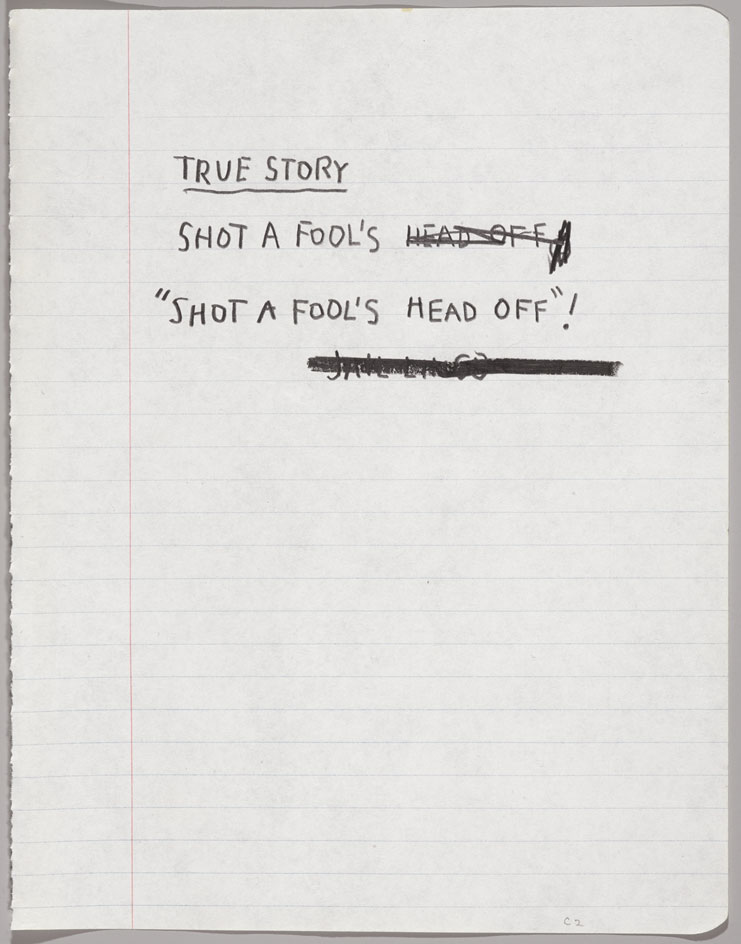 TRUE STORY
SHOT A FOOL'S HEAD OFF
"SHOT A FOOL'S HEAD OFF"!
JAIL LINGO
C2